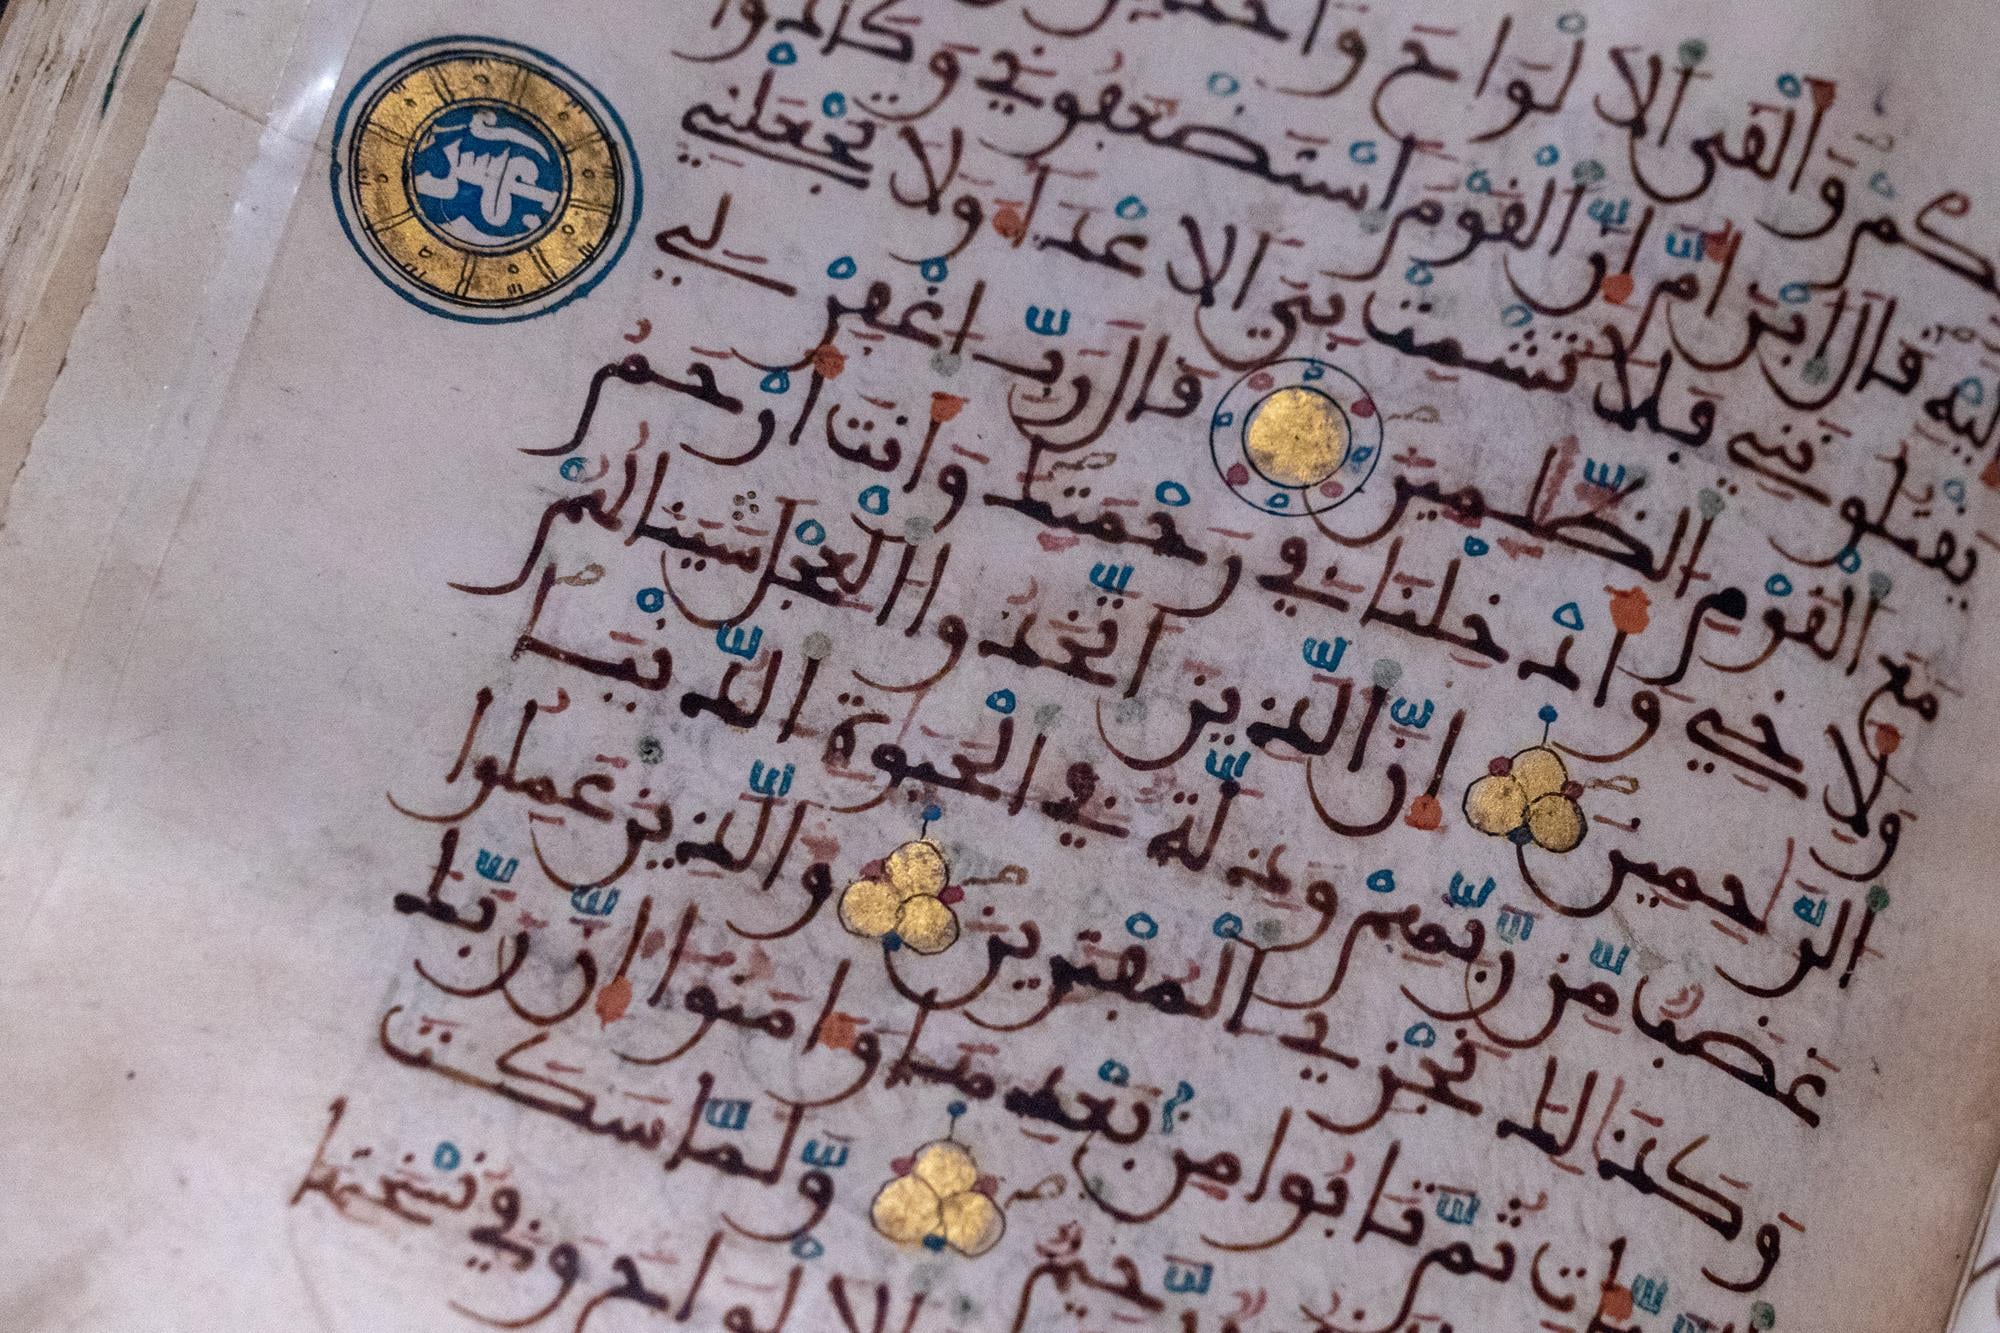 كم وَأَلْقَى الَالْوَاحَ وَأَخَذَ
لَيْهِ قَالَ ابْنَ أُمَّ إِنَّ الْقَوْمَ اسْتَضْعَفُونِي وَكَادُوا
يَقْتُلُونَنِي فَلَا تُشْمِتْ بِيَ الَاعْدَاءَ وَلَا تَجْعَلْنِي
مَعَ الْقَوْمِ الظَّلِمِينَ قَالَ رَبِّ اغْفِرْ لِي
وَلِأَخِي وَأَدْخِلْنَا فِي رَحْمَتِكَ وَأَنتَ أَرْحَمُ
الرَّاحِمِينَ إِنَّ الَّذِينَ اتَّخَذُوا الْعِجْلَ سَيَنَالُهُمْ
غَضَبٌ مِّن رَّبِّهِمْ وَذِلَّةٌ فِي الْحَيَوةِ الدُّنْيَا
وَكَذَلِكَ نَجْزِي الْمُفْتَرِينَ وَالَّذِينَ عَمِلُوا
ثُمَّ تَابُوا مِن بَعْدِهَا وَءَامَنُوا إِنَّ رَبَّكَ
رَّحِيمٌ وَلَمَّا سَكَتَ
الَالْوَاحَ وَفِي نُسْخَتِهَا